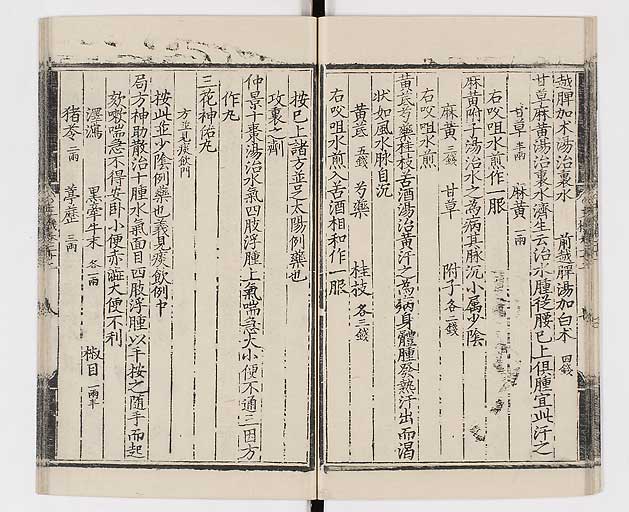 越脾加朮湯治裏水 前越脾湯加白朮 四錢
甘草麻黄湯治裏水濟生云治水腫從腰已上俱腫宜此汗之
甘草 半兩 麻黄 一兩
右㕮咀水煎作一服
麻黄附子湯治水之為病其脉沉小属少陰
麻黄 三錢 甘草 附子 各二錢
右㕮咀水煎
黄芪芍藥桂枝苦酒湯治黄汗之為病身體腫發熱汗出而渴
状如風水脉自沉
黄芪 五錢 芍藥 桂枝 各三錢
右㕮咀水煎入苦酒相和作一服
按已上諸方並足太陽例藥也
攻裏之劑
仲景十棗湯治水氣四肢浮腫上氣喘急大小便不通三因方
作丸
三花神佑丸
方並見痰飲門
按此並少陰例藥也義見痰飲例中
局方神助散治十腫水氣面目四肢浮腫以手按之随手而起
欬嗽喘急不得安卧小便赤澁大便不利
澤瀉 黒牽牛末 各一兩 椒目 一兩半
猪苓 二兩 葶藶 三兩